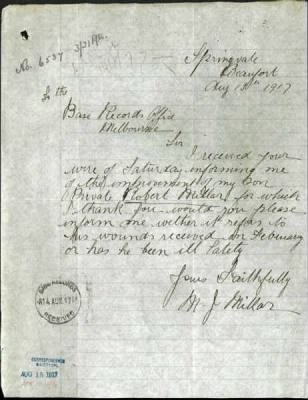 No. 6537
Springvale
Beaufort
Aug 13th 1917
To the
Base Records Office
Melbourne
Sir
I received your
wire of Saturday informing me
of the improvement of my Son
Private Robert Millar for which
I thank you would you please
inform me wether it refers to
his wounds received in February
or has he been ill lately
Yours Faithfully
M J Millar
BASE RECORDS
14 AUG 1917
RECEIVED
AUG 16 1917